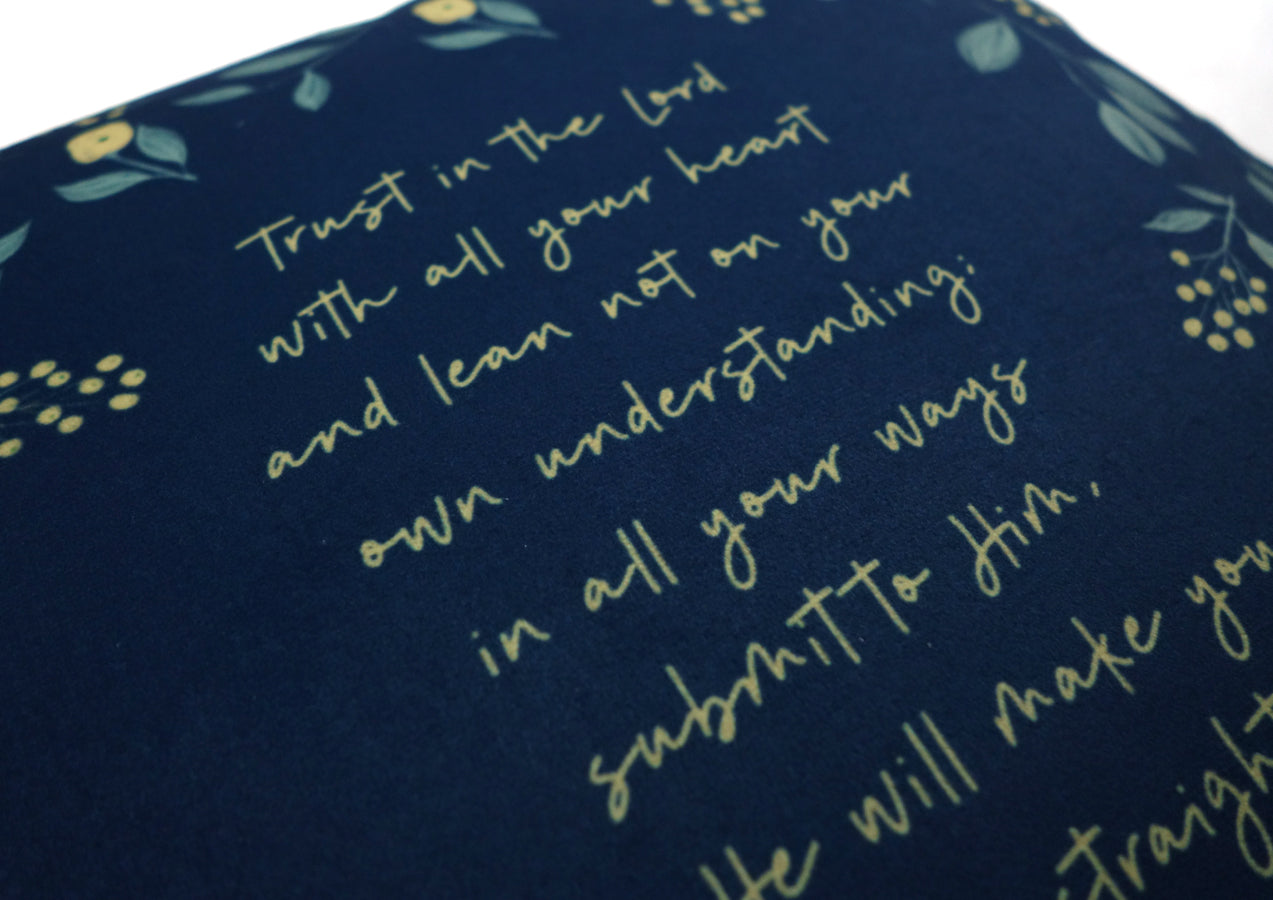 Trust in the Lord
with all your heart
and lean not on your
own understanding;
in all your ways
submit to Him,
He will make you
straight